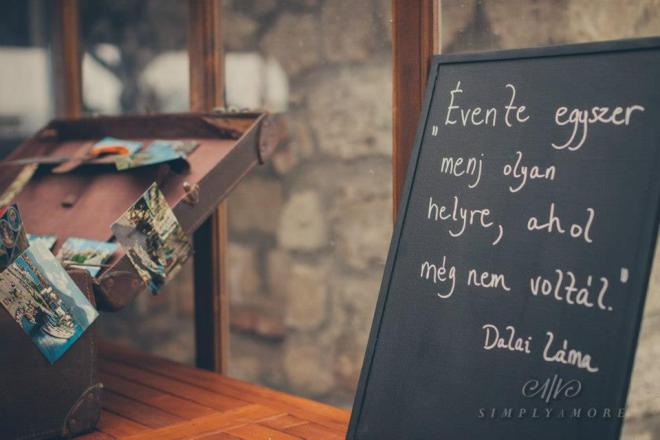 „Évente egyszer
menj olyan
helyre, ahol
még nem voltál."
Dalai Láma
SIMPLYAMORE